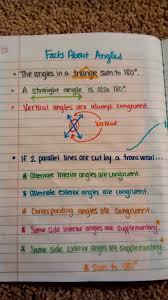 Facts About Angles
• The angles in a triangle sum to 180°.
• A straight angle is also 180°.
• Vertical angles are always congruent.
Vertical
• If 2 parallel lines are cut by a transversal...
* Alternate interior angles are congruent.
* Alternate exterior angles are congruent.
* Corresponding angles are congruent.
* Same side interior angles are supplementary.
* Same side exterior angles are supplementary.
* Sum to 180°